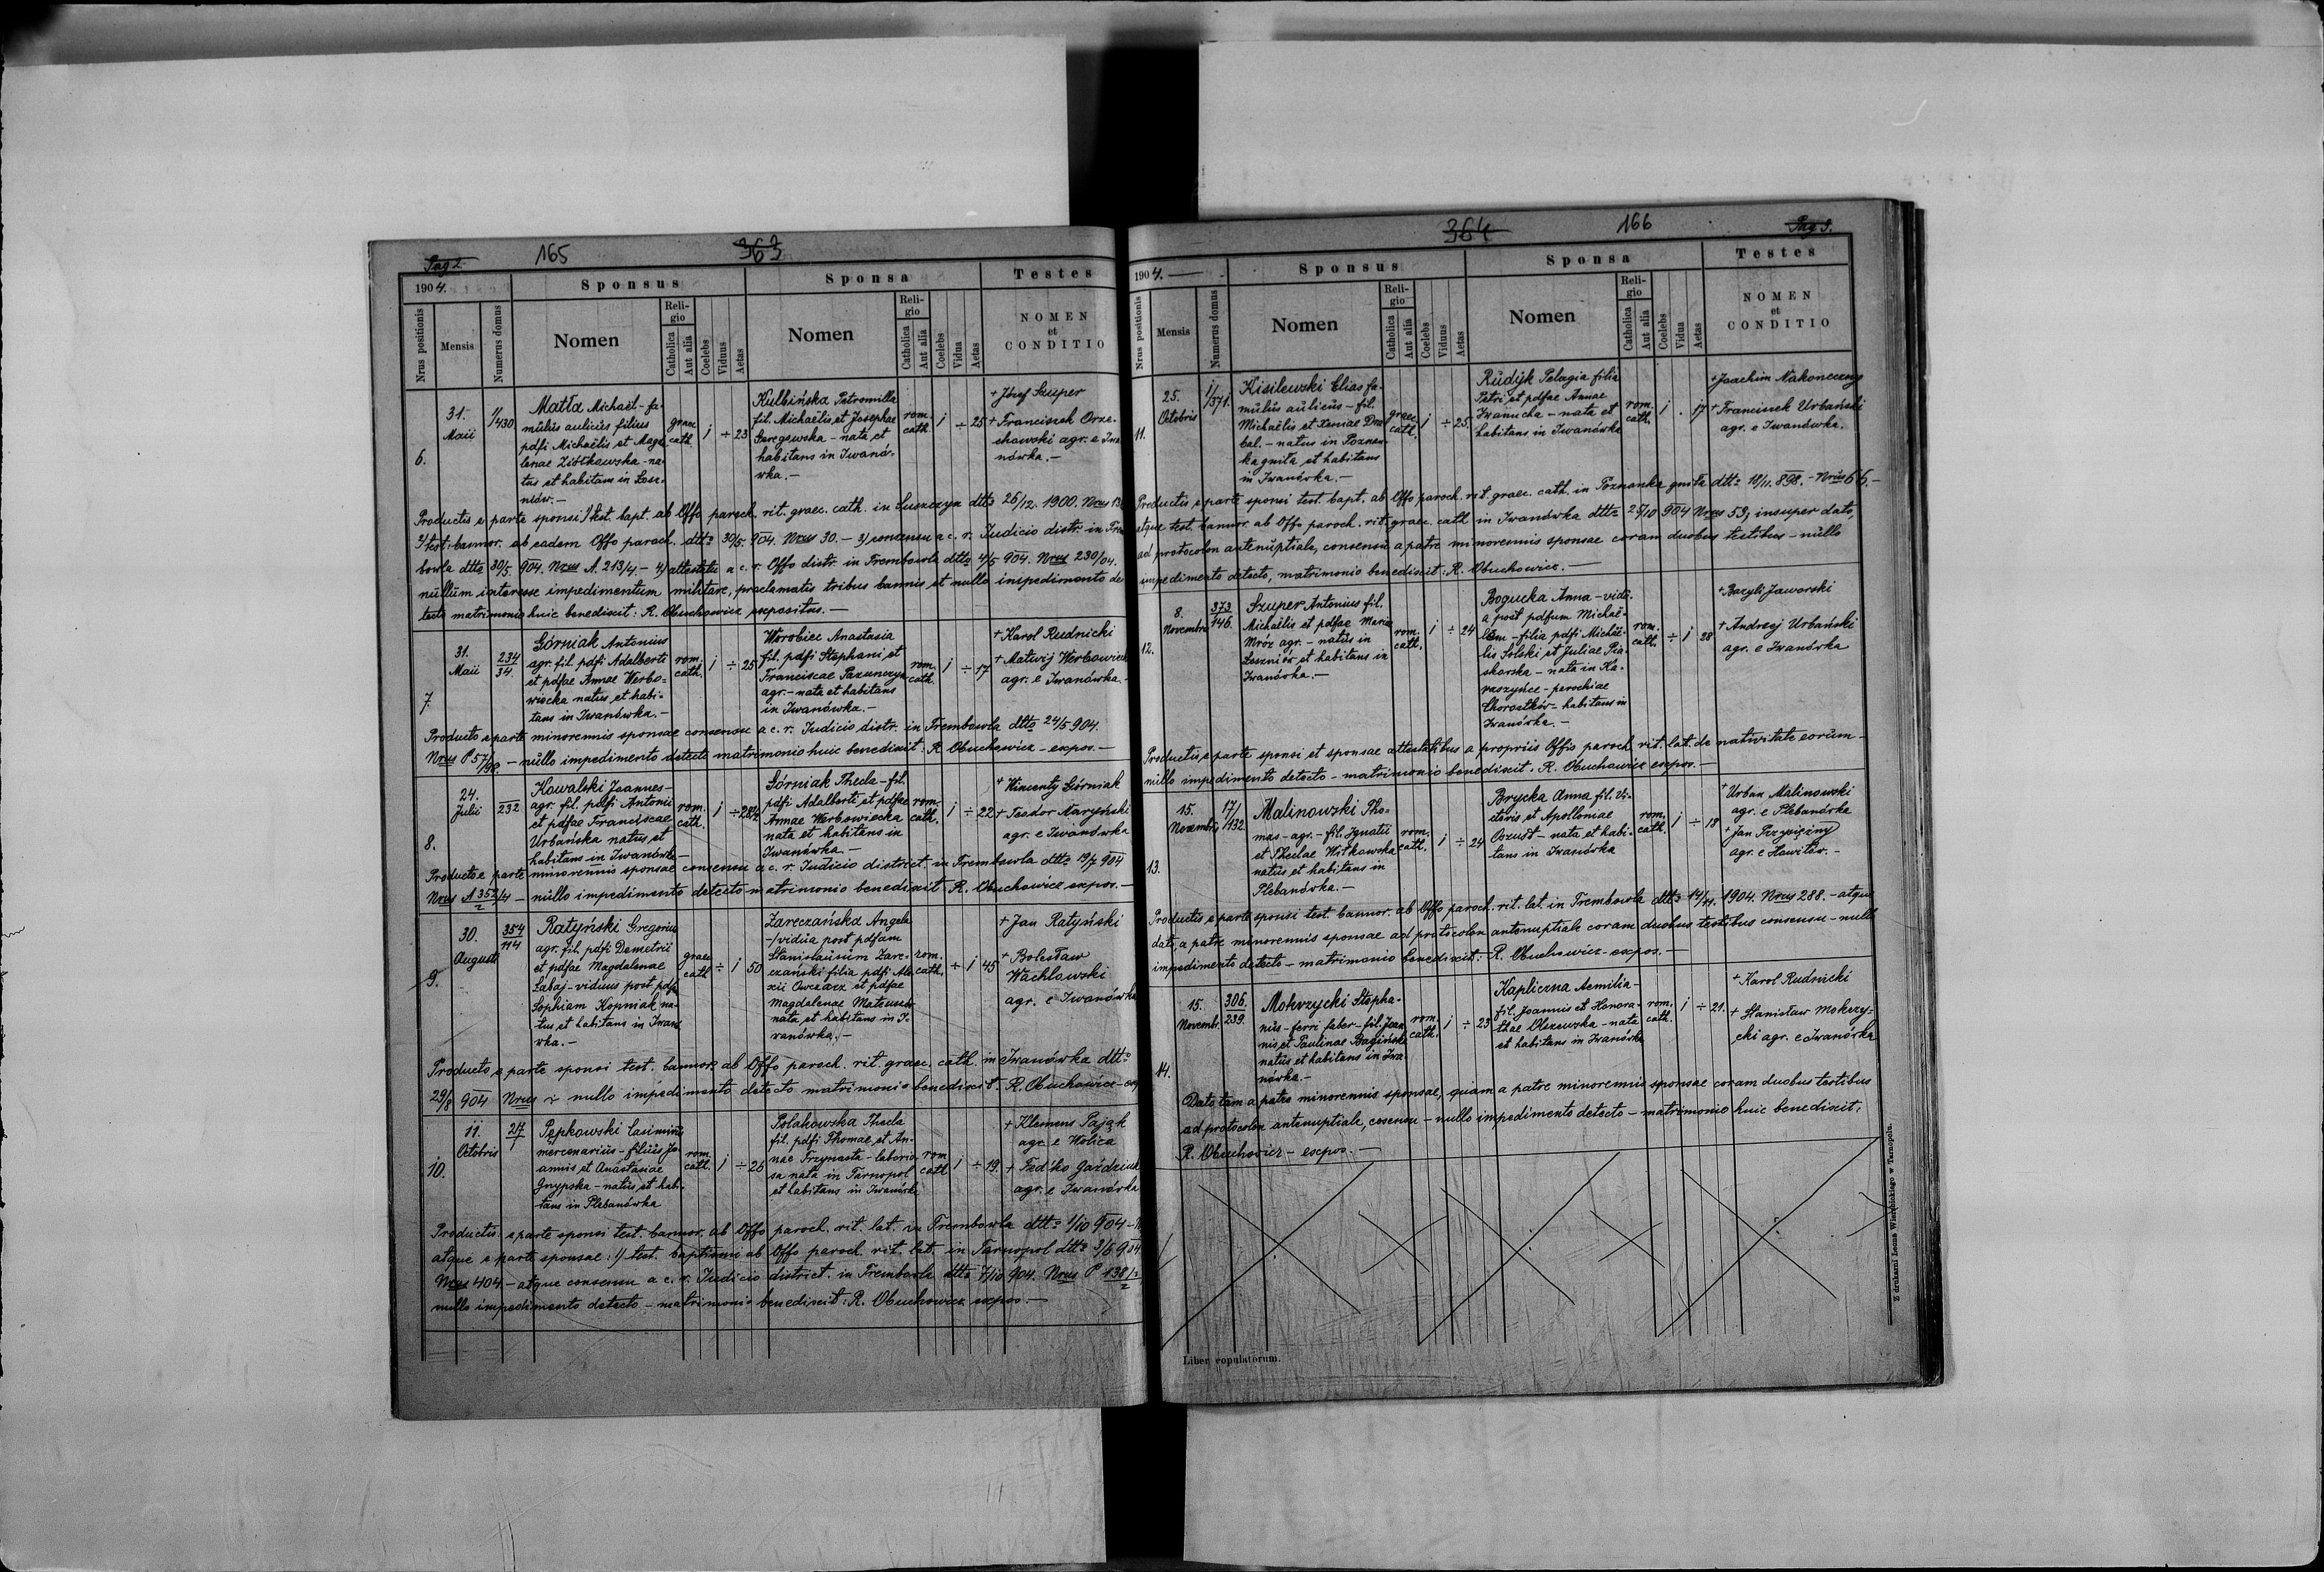 Pag 2.
165
363
1904.
Sponsus
Sponsa
Testes
Nrus positionis
Mensis
Numerus domus
Nomen
Religio
Catholica
Aut alia
Coelebs
Viduus
Aetas
Nomen
Religio
Catholica
Aut alia
Coelebs
Vidua
Aetas
NOMEN
et
CONDITIO
6.
31.
Maii
1/430
Matła Michaël - fa-
mulus aulicus filius
pdfi Michaëlis et Magd
lenae Ziółkowska - na-
tus et habitans in Łosz-
niów. -
graec.
cath.
i ÷ 23
Kulbińska Petronilla
fil. Michaëlis et Josephae
nata et
habitans in Iwanó-
wka. -
rom.
cath.
i ÷ 25
+ Józef Szuper
+ Franciszek Orze-
chowski agr. e Iwa
nówka. -
Productis e parte sponsi 1) test. bapt. ab Offo paroch. rit. graec. cath. in Łuszczyn dtto 26/12. 1900. Nrus
2) test. bannor. ab eadem Offo paroch. dtto 30/5. 904. Nrus 30. - 3) consensu a c. r. Judicio distr. in Tre
bowla dtto 30/5. 904. Nrus A. 213/4 - 4) attestatu a c. r. Offo distr. in Trembowla dtto 4/5 904. Nrus 230/04.
nullum interesse impedimentum militare, proclamatis tribus bannis et nullo impedimento de
tecto matrimonio huic benedixit: R. Obuchowicz expositus. -
7.
31.
Maii
234
34.
Górniak Antonius
agr. fil. pdfi Adalberti
et pdfae Annae Werbo-
wiecka natus et habi-
tans in Iwanówka. -
rom.
cath.
i ÷ 25
Worobiec Anastasia
fil. pdfi Stephani et
Franciscae
agr. - nata et habitans
in Iwanówka. -
rom.
cath.
i ÷ 17
+ Karol Rudnicki
+ Matwij Werbowiecki
agr. e Iwanówka. -
Producto e parte minorennis sponsae consensu a c. r. Judicio distr. in Trembowla dtto 24/5 904.
Nrus P 57/98. - nullo impedimento detecto matrimonio huic benedixit: R. Obuchowicz - expos. -
8.
24.
Julii
232
Kowalski Joannes -
agr. fil. pdfi Antonii
et pdfae Franciscae
Urbańska natus et
habitans in Iwanówka -
rom.
cath.
i ÷ 28½
Górniak Thecla - fil.
pdfi Adalberti et pdfae
Annae Werbowiecka
nata et habitans in
Iwanówka. -
rom.
cath.
i ÷ 22
+ Wincenty Górniak
+ Teodor Naryński
agr. e Iwanówka
Producto e parte minorennis sponsae consensu a c. r. Judicio district. in Trembowla dtto 19/7 904
Nrus A 352/4 - nullo impedimento detecto matrimonio benedixit R. Obuchowicz expos. -
9.
30.
Augusti
354
114
Ratyński Gregorius
agr. fil. pdfi Demetrii
et pdfae Magdalenae
Łabaj - viduus post pdfa
Sophiam Kopniak na-
tus et habitans in Iwanó
wka. -
graec.
cath.
÷ i 50
Zareczańska Angela
- vidua post pdfum
Stanislaum Zare-
czański filia pdfi Ale
xii Owczarz et pdfae
Magdalenae
nata et habitans in I-
wanówka. -
rom.
cath.
÷ i 45
+ Jan Ratyński
+ Bolesław
Wachlowski
agr. e Iwanówka
Producto e parte sponsi test. bannor. ab Offo paroch. rit. graec. cath. in Iwanówka dtto
29/8 904 Nrus ÷ nullo impedimento detecto matrimonio benedixit. R. Obuchowicz - exp
10.
11.
Octobris
27
Pępkowski Casimirus
mercenarius - filius Jo-
annis et Anastasiae
Gnypska - natus et habi-
tans in Plebanówka
rom.
cath.
i ÷ 26
Polakowska Thecla
fil. pdfi Thomae et An-
nae Trzynasta - laborio-
sa nata in Tarnopol
et habitans in Iwanówka
rom.
cath.
i ÷ 19.
+ Klemens Pająk
agr. e Wolica
+ Fedko Gaździuk
agr. e Iwanówka
Productis e parte sponsi test. bannor. ab Offo paroch. rit. lat. in Trembowla dtto 1/10 904 -
atque e parte sponsae: 1) test. baptismi ab Offo paroch. rit. lat. in Tarnopol dtto 3/6 904
Nrus 404. - atque consensu a c. r. Judicio district. in Trembowla dtto 7/10 904. Nrus P 138/2
nullo impedimento detecto - matrimonio benedixit: R. Obuchowicz expos. -
364
166
Pag 3.
1904.
Sponsus
Sponsa
Testes
Nrus positionis
Mensis
Numerus domus
Nomen
Religio
Catholica
Aut alia
Coelebs
Viduus
Aetas
Nomen
Religio
Catholica
Aut alia
Coelebs
Vidua
Aetas
NOMEN
et
CONDITIO
11.
25.
Octobris
1/371.
Kisilewski Elias fa-
mulus aulicus - fil.
Michaëlis et Xeniae Dra
bal. - natus in Poznan-
ka gniła et habitans
in Iwanówka. -
graec.
cath.
i ÷ 25.
Rudyk Pelagia filia
Petri et pdfae Annae
Iwanucha - nata et
habitans in Iwanówka
rom.
cath.
i . 17
+ Joachim Nakoneczny
+ Franciszek Urbański
agr. e Iwanówka.
Productis e parte sponsi test. bapt. ab Offo paroch. rit. graec. cath. in Poznanka gniła dtto 18/11. 898. - Nrus 66. -
atque test. bannor. ab Offo paroch. rit. graec. cath in Iwanówka dtto 25/10 904 Nrus 53; insuper dato,
ad protocolon antenuptiale, consensu a patre minorennis sponsae coram duobus testibus - nullo
impedimento detecto, matrimonio benedixit: R. Obuchowicz. -
12.
8.
Novembris
373
146.
Szuper Antonius fil.
Michaëlis et pdfae Mariae
Mróz agr. - natus in
Łoszniów et habitans in
Iwanówka. -
rom.
cath.
i ÷ 24
Bogucka Anna - vidu-
a post pdfum Michaë-
lem - filia pdfi Michaë-
lis Solski et Juliae Pia-
skowska - nata in Ka-
raszyńce - parochiae
Chorostków - habitans in
Iwanówka. -
rom.
cath.
÷ i 28
+ Bazyli Jaworski
+ Andrzej Urbański
agr. e Iwanówka
Productis e parte sponsi et sponsae attestatibus a propriis Offis paroch. rit. lat. de nativitate eorum -
nullo impedimento detecto - matrimonio benedixit. R. Obuchowicz expos. -
13.
15.
Novembr.
17/
132
Malinowski Tho-
mas - agr. - fil. Ignatii
et Theclae Witkowska
natus et habitans in
Plebanówka. -
rom.
cath.
i ÷ 24
Brycka Anna fil. Vi-
ctoris et Apolloniae
nata et habi-
tans in Iwanówka
rom.
cath.
i ÷ 18
+ Urban Malinowski
agr. e Plebanówka
+ Jan
agr. e Howiłów. -
Productis e parte sponsi test. bannor. ab Offo paroch. rit. lat. in Trembowla dtto 14/11. 1904. Nrus 288. - atque
dato, a patre minorennis sponsae ad protocolon antenuptiale coram duobus testibus consensu - nullo
impedimento detecto - matrimonio benedixit: R. Obuchowicz - expos. -
14.
15.
Novembr.
306.
239.
Mokrzycki Stepha-
nus - ferri faber - fil. Joan
nis et Paulinae Bagińsk
natus et habitans in Iwa
nówka. -
rom.
cath.
i ÷ 23
Kapliczna Aemilia -
fil. Joannis et Honora-
thae Olszewska - nata
et habitans in Iwanówka
rom.
cath.
i ÷ 21.
+ Karol Rudnicki
+ Stanisław Mokrzy-
cki agr. e Iwanówka
Dato tam a patre minorennis sponsae, quam a patre minorennis sponsae coram duobus testibus
ad protocolon antenuptiale, cosensu - nullo impedimento detecto - matrimonio huic benedixit;
R. Obuchowicz - expos. -
Liber copulatorum.
Z drukarni Leona Wierzbickiego w Tarnopolu.